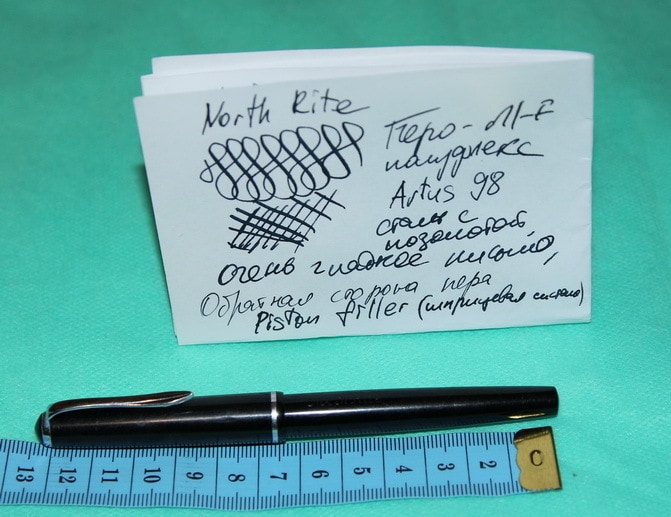 North Rite
Перо - M-F
полуфлекс
Artus 98
сталь с
позолотой,
очень гладкое письмо,
Обратная сторона пера
Piston filler (шприцевая система)
13 12 11 10 9 8 7 6 5 4 3 2 0